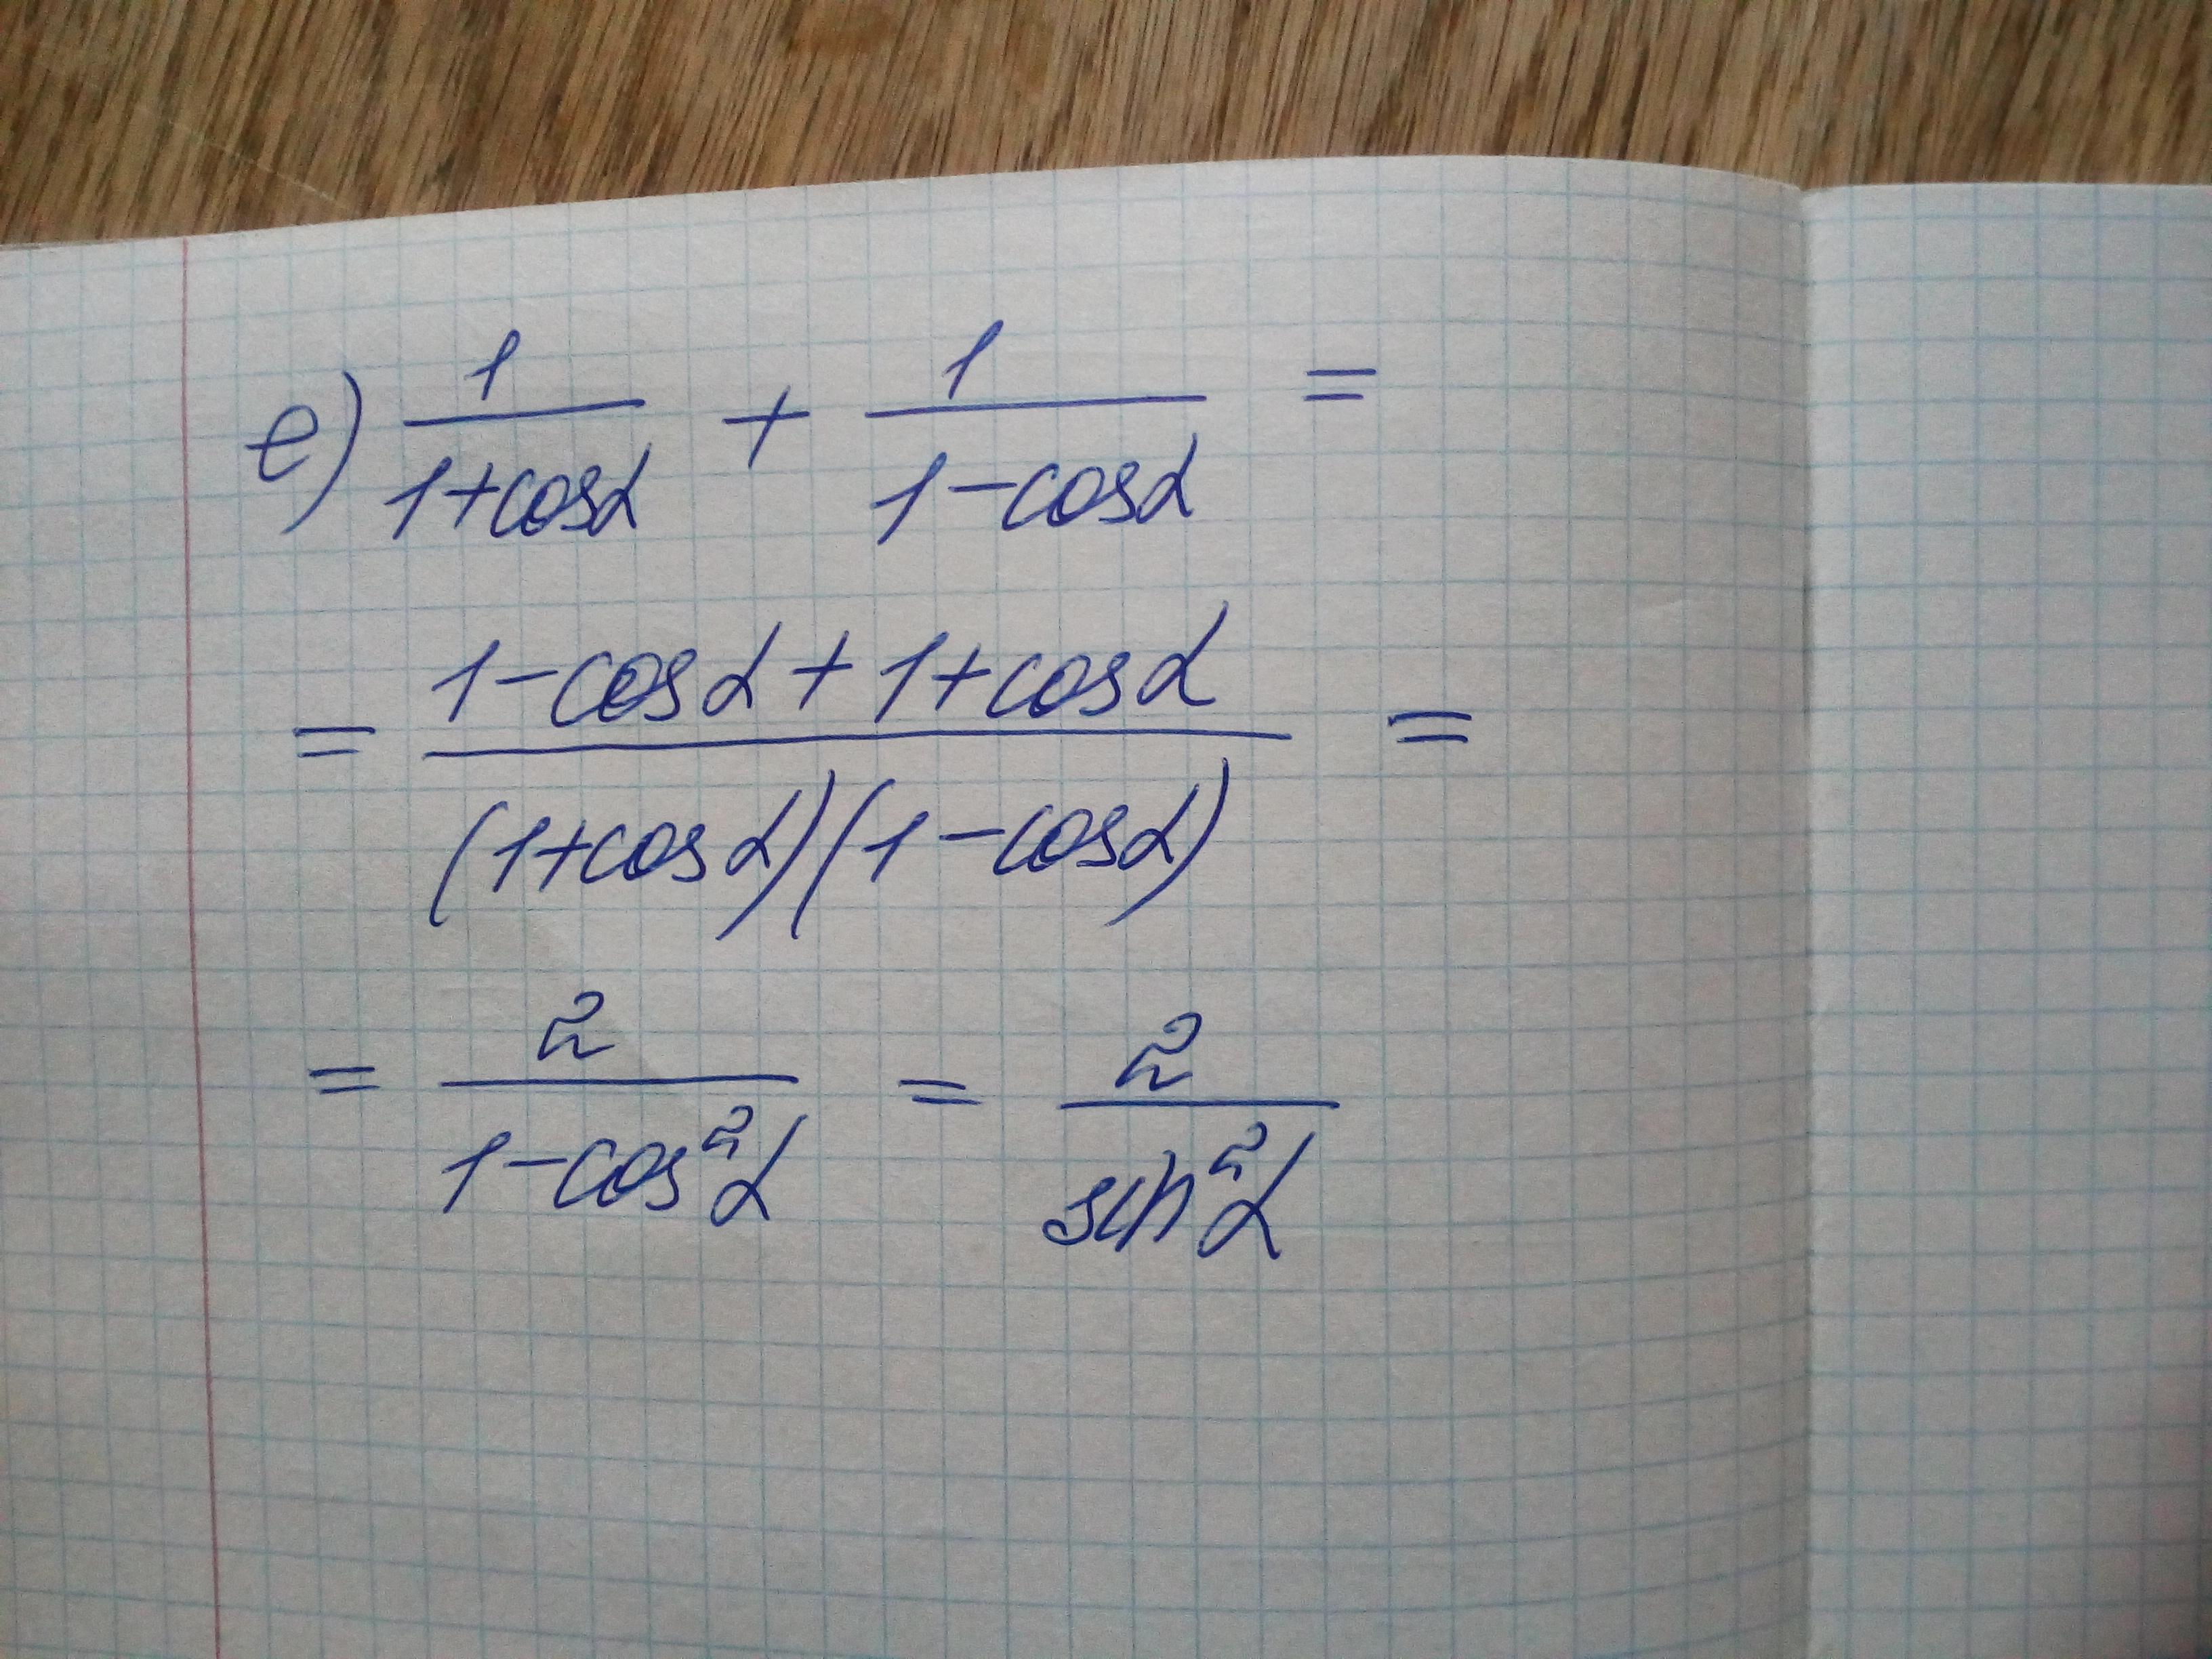 е) 1/(1+cosα) + 1/(1-cosα) =
= (1-cosα+1+cosα)/((1+cosα)(1-cosα)) =
= 2/(1-cos²α) = 2/sin²α